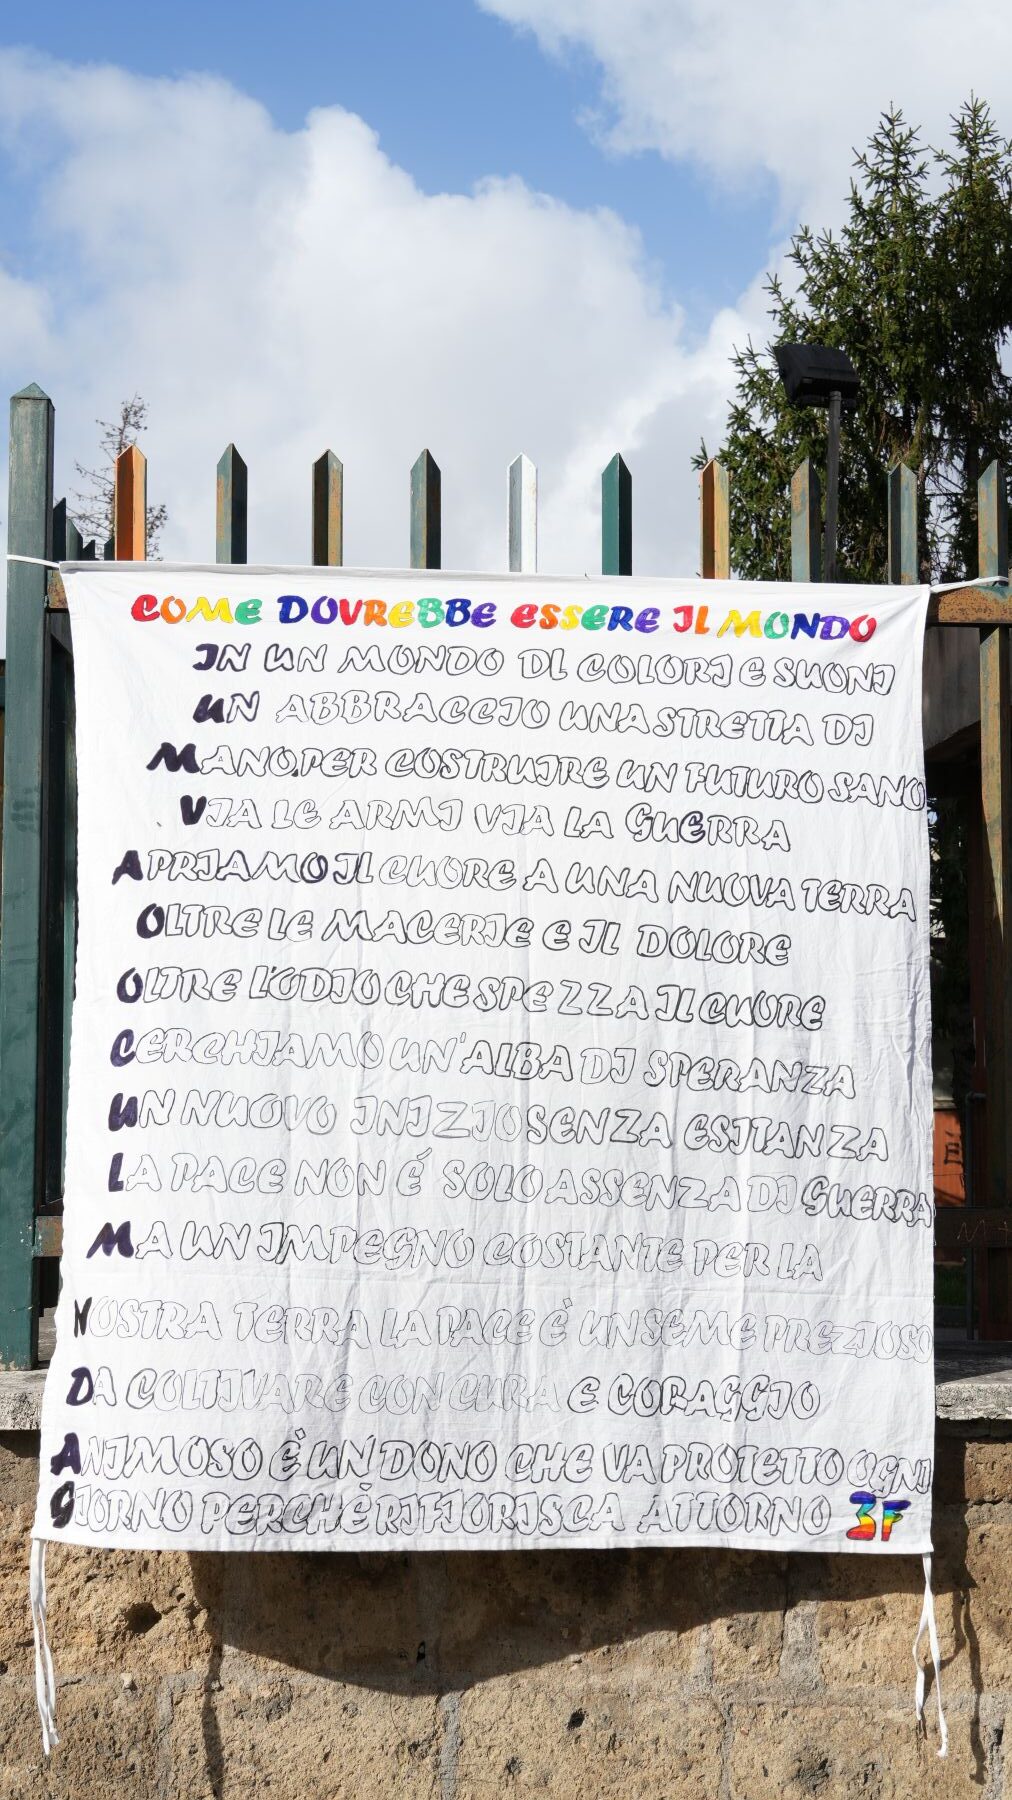 COME DOVREBBE ESSERE IL MONDO
IN UN MONDO DI COLORI E SUONI
UN ABBRACCIO UNA STRETTA DI
MANO.PER COSTRUIRE UN FUTURO SANO
VIA LE ARMI VIA LA GUERRA
APRIAMO IL CUORE A UNA NUOVA TERRA
OLTRE LE MACERIE E IL DOLORE
OLTRE L'ODIO CHE SPEZZA IL CUORE
CERCHIAMO UN'ALBA DI SPERANZA
UN NUOVO INIZIO SENZA ESITANZA
LA PACE NON É SOLO ASSENZA DI GUERRA
MA UN IMPEGNO COSTANTE PER LA
NOSTRA TERRA LA PACE È UN SEME PREZIOSO
DA COLTIVARE CON CURA E CORAGGIO
ANIMOSO È UN DONO CHE VA PROTETTO OGNI
GIORNO PERCHÉ RIFIORISCA ATTORNO 3F